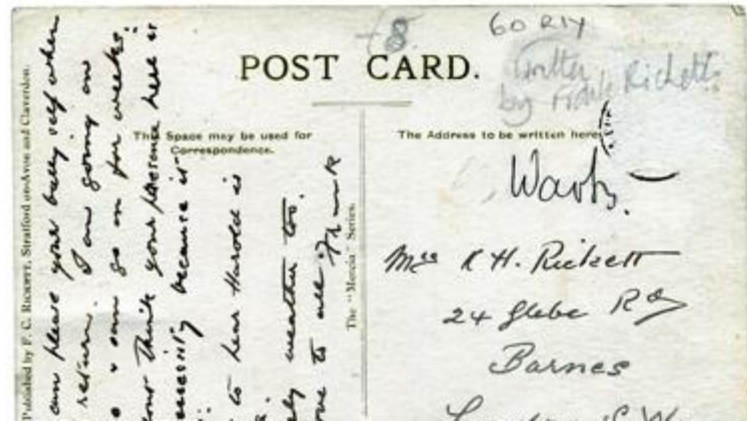 £8.
60 RLY
Written
by Frank Ricketts
POST CARD.
This Space may be used for
Correspondence.
The Address to be written here
Published by F. C. RICKETT, Stratford on-Avon and Claverdon.
The "Mercia" Series.
can please your baby self when
return. I am going on
can go on for weeks.
think your presence here is
necessity because it
to hear Harold is
weather too.
love to all Frank
Warks.
Mrs K H. Rickett
24 Glebe Rd
Barnes
London S W